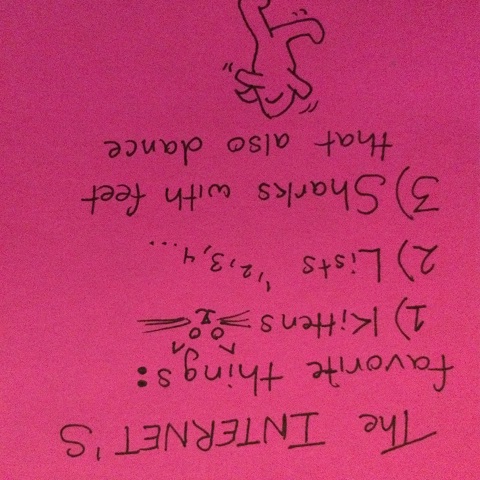 The INTERNET'S
favorite things:
1) Kittens
2) Lists 1,2,3,4...
3) Sharks with feet
that also dance